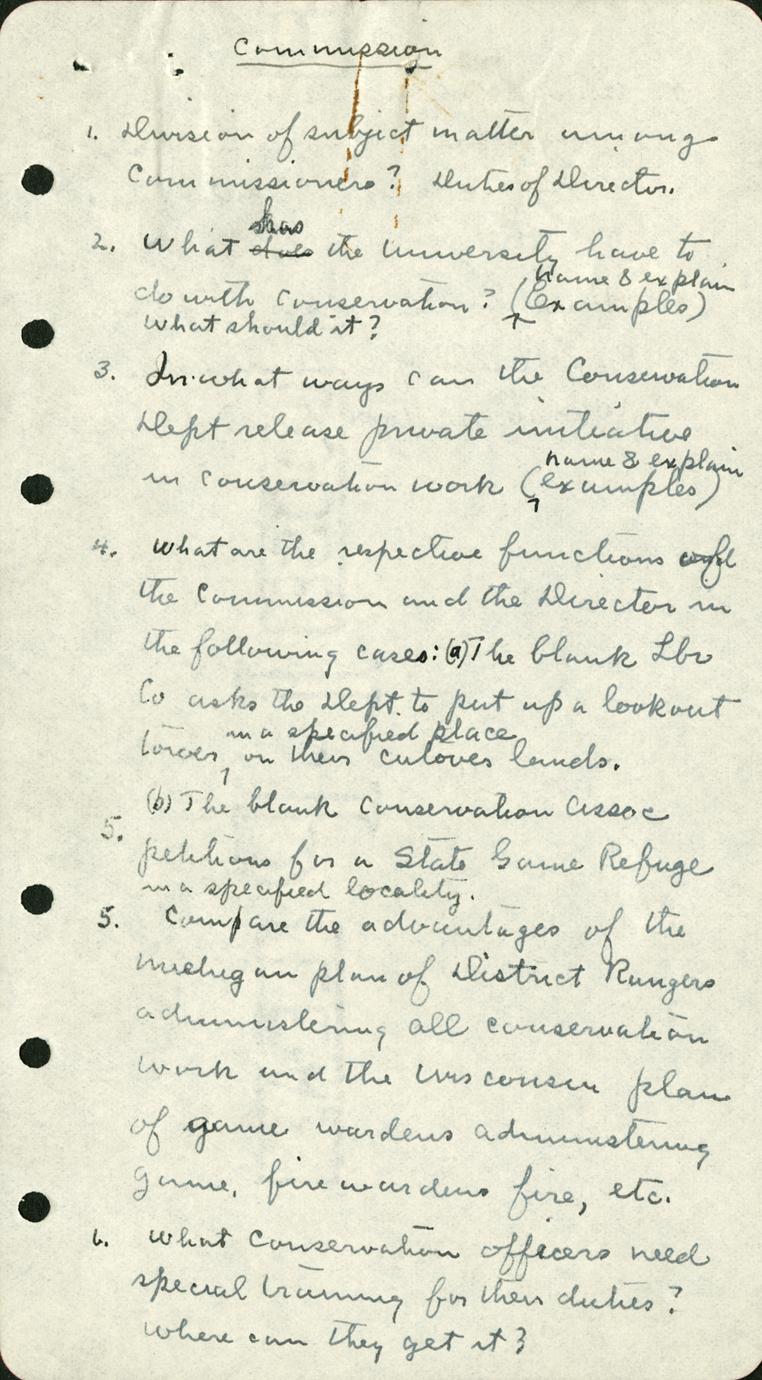 Commission
1. Division of subject matter among
Commissioners? Duties of Director.
has
2. What does the University have to
name & explain
do with conservation? (Examples)
What should it?
3. In what ways can the Conservation
Dept release private initiative
name & explain
in conservation work (examples)
4. What are the respective functions of
the Commission and the Director in
the following cases: (a) The blank Lbr
Co asks the Dept. to put up a lookout
in a specified place
tower on their cutover lands.
(b) The blank Conservation Assoc
5.
petitions for a State Game Refuge
in a specified locality.
5. Compare the advantages of the
Michigan plan of District Rangers
administering all conservation
work and the Wisconsin plan
of game wardens administering
game, fire wardens fire, etc.
6. What conservation officers need
special training for their duties?
Where can they get it?